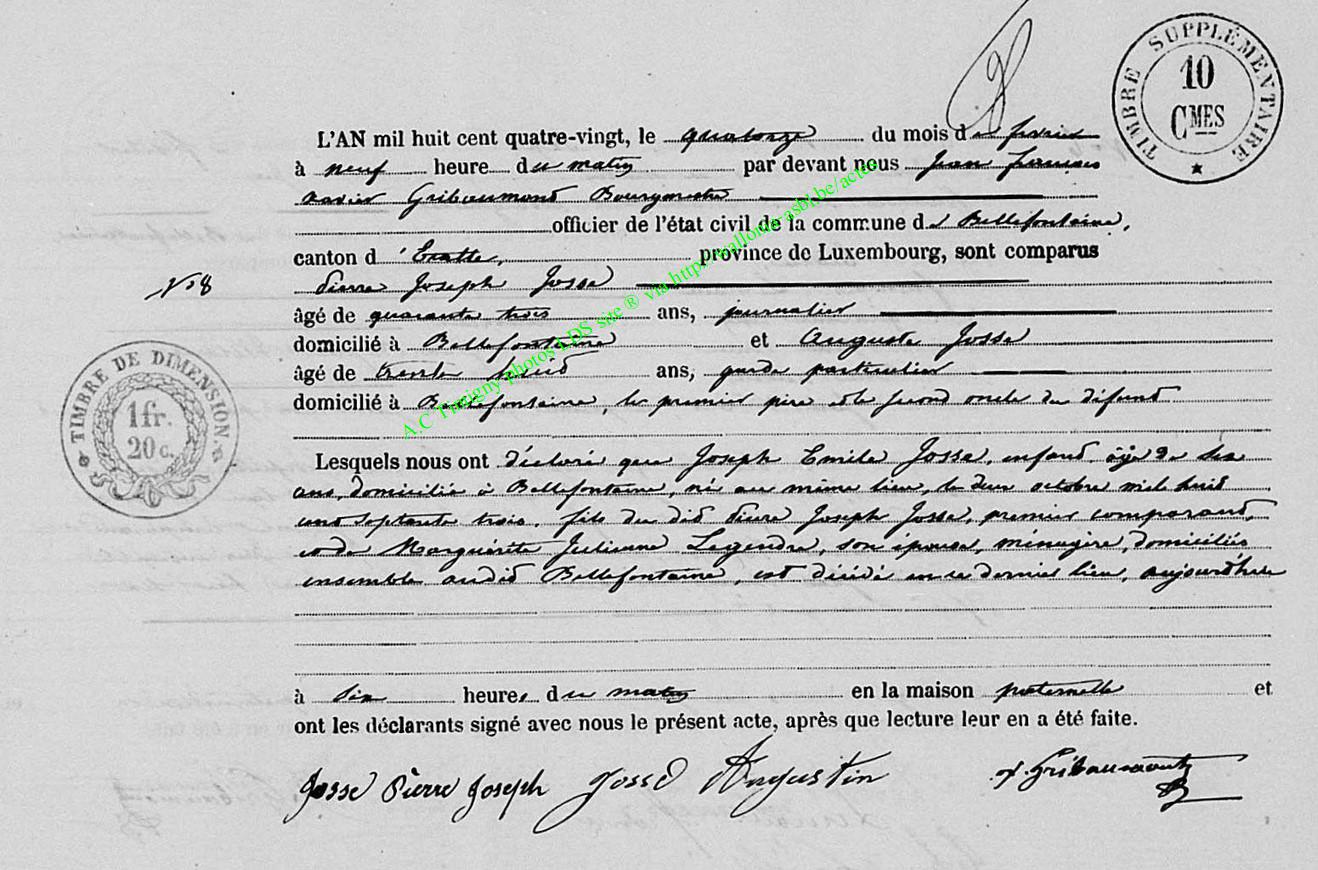 TIMBRE SUPPLÉMENTAIRE
10
CMES
L'AN mil huit cent quatre-vingt, le quatorze du mois de février
à neuf heure du matin par devant nous Jean francois
xavier Gribaumont Bourgmestre
officier de l'état civil de la commune de Bellefontaine,
canton d'Etalle, province de Luxembourg, sont comparus
N° 8
Pierre Joseph Josse
âgé de quarante trois ans, journalier
domicilié à Bellefontaine et Auguste Josse
âgé de trente huit ans, garde particulier
domicilié à Bellefontaine, le premier père et le second oncle du défunt
TIMBRE DE DIMENSION
1 fr.
20 c.
Lesquels nous ont déclaré que Joseph Emile Josse, enfant, âgé de six
ans, domicilié à Bellefontaine, né au même lieu, le deux octobre mil huit
cent septante trois, fils du dit Pierre Joseph Josse, premier comparant,
et de Marguérite Julienne Legendre, son épouse, ménagère, domiciliés
ensemble audit Bellefontaine, est décédé en ce dernier lieu, aujourd'hui
à six heures du matin en la maison paternelle et
ont les déclarants signé avec nous le présent acte, après que lecture leur en a été faite.
Josse Pierre Joseph Josse Augustin x. Gribaumont
A.C Tintigny photos LDS site ® via http://wallonia.asbl.be/actes